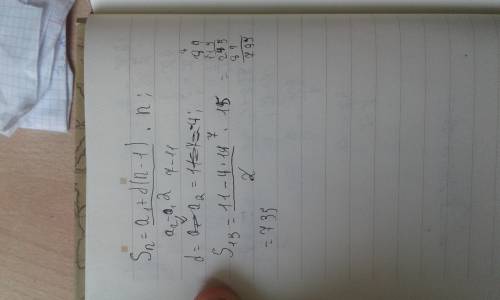 Sₙ = a₁ + d(n-1) · n ;
2
a₂ - a₁ 7 - 11
d = a₂ = 11 - 7 = 4 ;
S₁₅ = 11 - 4 · 14 · 15 =
2
= 735
49
245
49
735